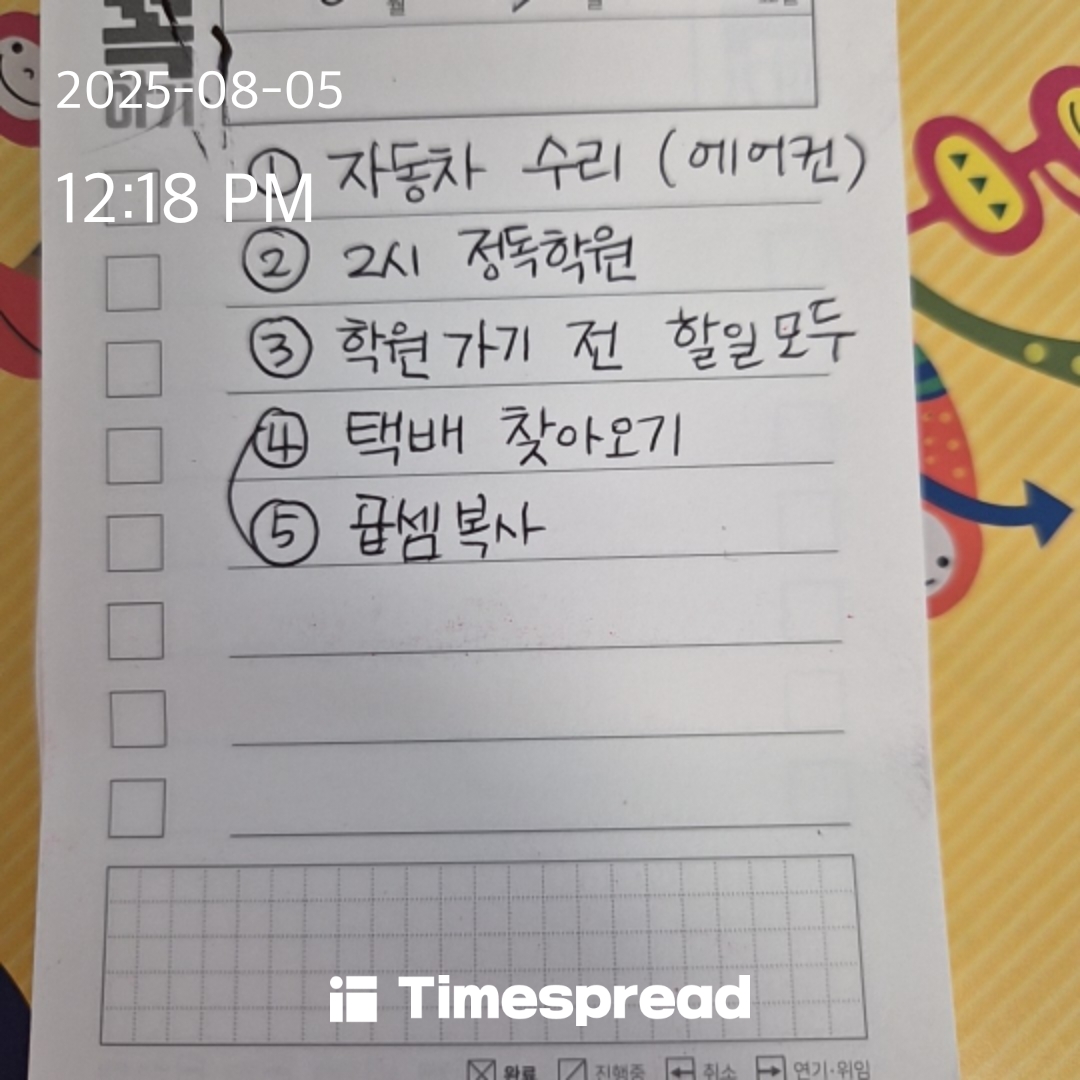 월 일
2025-08-05
하기
① 자동차 수리 (에어컨)
12:18 PM
② 2시 정독학원
③ 학원 가기 전 할일 모두
④ 택배 찾아오기
⑤ 곱셈 복사
Timespread
완료 진행중 취소 연기·위임